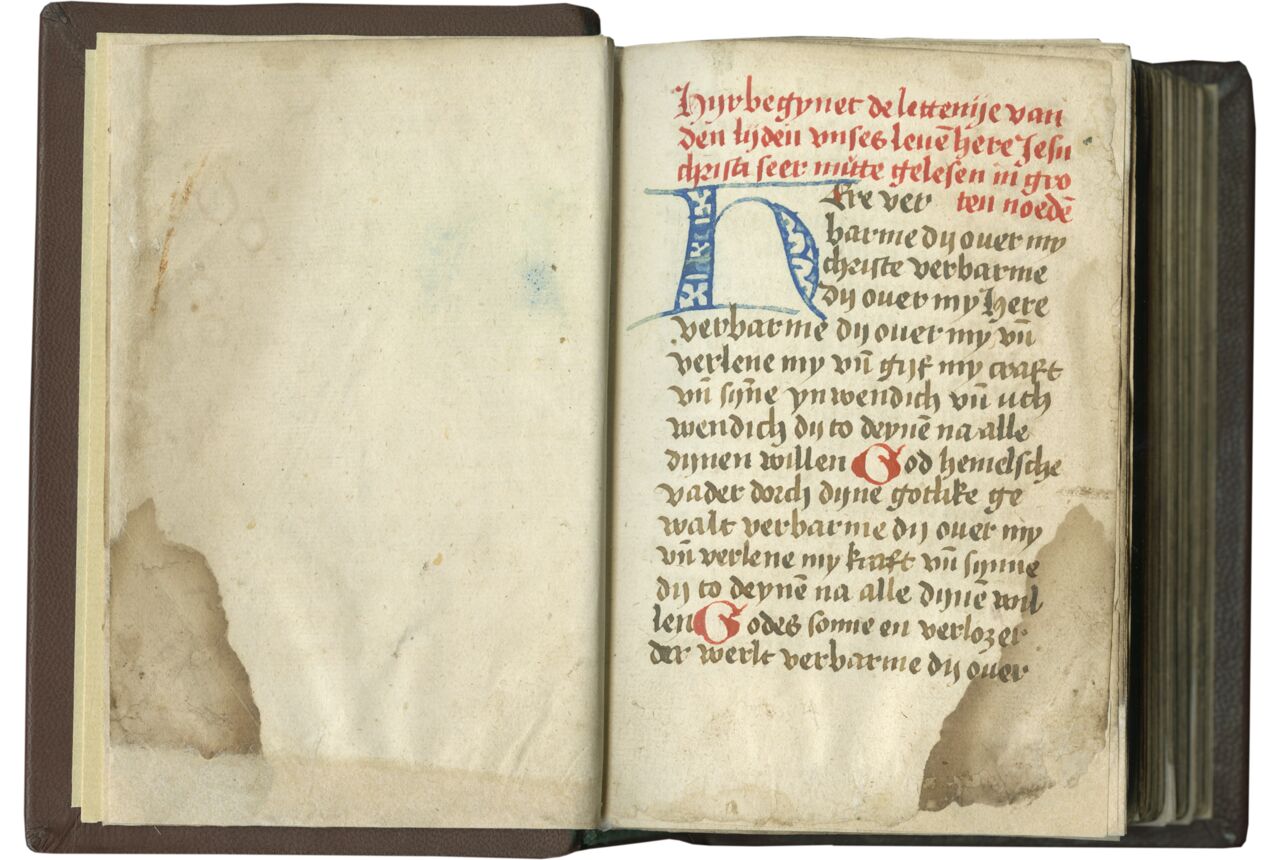 Hijr begynet de lettenije van
den lijden vnses leuē here Jesu
christi seer nutte gelesen in gro
ten noedē
Here ver
barme dij ouer my
christe verbarme
dij ouer my Here
verbarme dij ouer my vn̄
verlene my vn̄ gijf my craft
vn̄ sijn̄e ynwendich vn̄ uth
wendich dij to deynē na alle
dijnen willen God hemelsche
vader dorch dijne gotlike ge
walt verbarme dij ouer my
vn̄ verlene my kraft vn̄ synne
dij to deynē na alle dijnē wil
len Godes sonne en verlozer
der werlt verbarme dij ouer